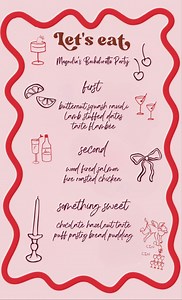 Let's eat
Magnolia's Bachelorette Party
first
butternut squash ravioli
lamb stuffed dates
tarte flambee
second
wood fired salmon
fire roasted chicken
something sweet
chocolate hazelnut tarte
puff pastry bread pudding